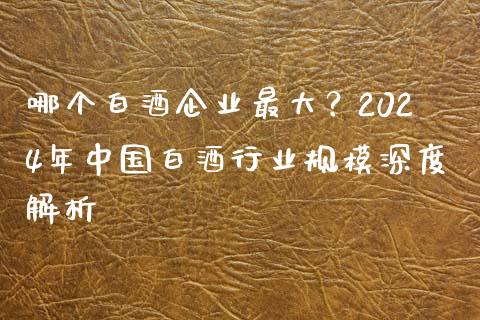 哪个白酒企业最大？202
4年中国白酒行业规模深度
解析